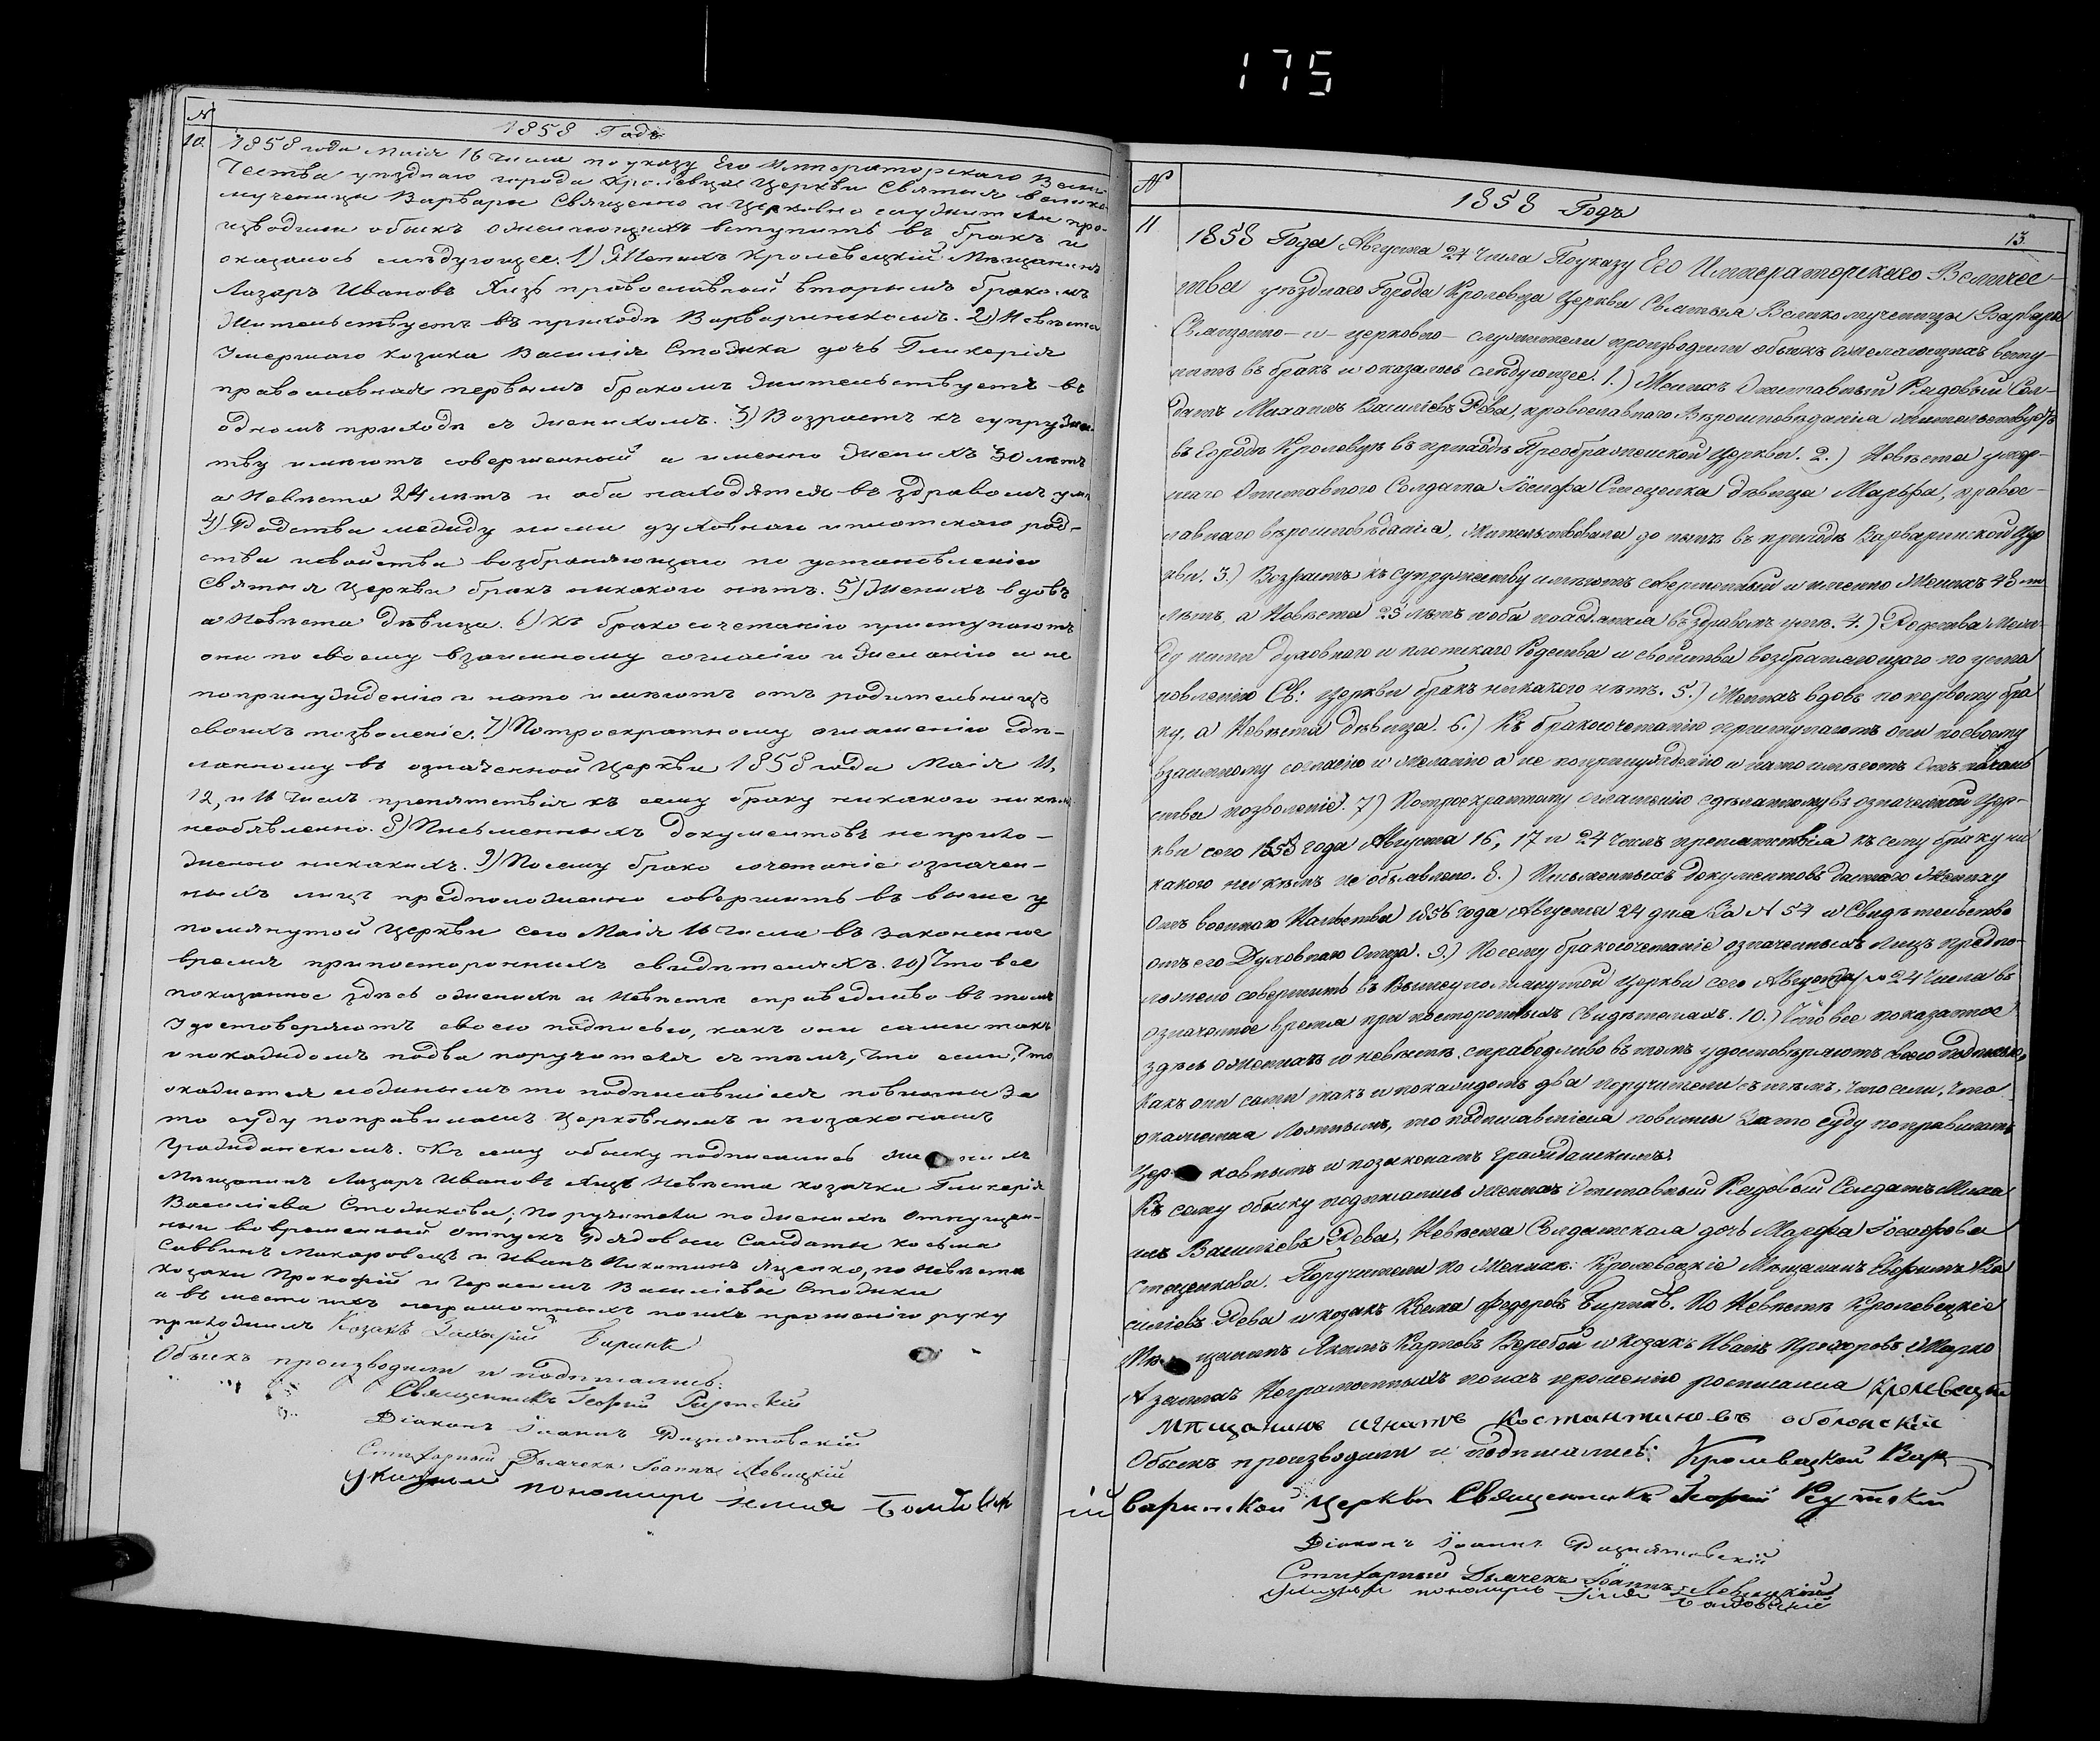 175
N
1858 Годъ
10.
1858 года Маія 16 числа по указу Его Императорскаго Вели-
чества уѣзднаго города Кролевца Церкви Святыя велико-
мученицы Варвары Священно и Церковно служители про-
изводили обыскъ ожелающихъ вступить въ бракъ и
оказалось слѣдующее. 1) Женихъ Кролевецкій Мѣщанинъ
Лазарь Ивановъ православный вторымъ бракомъ
жительствуетъ въ приходѣ Варваринскомъ. 2) Невѣста
Умершаго козака Василія Стожка дочь Гликерія
православная первымъ бракомъ жительствуетъ въ
одномъ приходѣ съ женихомъ. 3) Возрастъ къ супруже-
тву имѣютъ совершенный а именно Женихъ 30 лѣтъ
а Невѣста 24 лѣтъ и оба находятся въ здравомъ умѣ
4) Родства между ними духовнаго и плотскаго род-
ства и свойства возбраняющаго по установленію
Святыя Церкви бракъ никакого нѣтъ. 5) Женихъ вдовъ
а Невѣста дѣвица. 6) Къ бракосочетанію приступаютъ
они по своему взаимному согласію и желанію и не
по принужденію и нато имѣютъ отъ родительницъ
своихъ позволеніе. 7) По троекратному оглашенію сдѣ-
ланному въ означенной Церкви 1858 года Маія 11,
12, и 16 числъ препятствія къ сему браку никакого никѣмъ
необъявленно. 8) Письменныхъ документовъ не прило-
женно никакихъ. 9) Посему брако сочетаніе означен-
ныхъ лицъ предположенно совершить въ выше у
помянутой Церкви сего Маія 16 числа въ законенное
время при посторонныхъ свидѣтеляхъ. 10) Что все
показанное здѣсь о женихѣ и Невѣстѣ справедливо въ томъ
Удостоверяютъ своею подписью, какъ они сами такъ
и по каждомъ по два поручителя съ тѣмъ, что если что
окажется ложнымъ то подписавшіеся повинны за
то суду по правиламъ церковнымъ и по законамъ
Гражданскимъ. Къ сему обыску подписались женихъ
Мѣщанинъ Лазарь Ивановъ Невѣста козачка Гликерія
Василіева Стожкова; Поручители по женихѣ Отпущен-
ный во временный отпускъ рядовые Салдаты Козьма
Саввинъ Макаровецъ и Иванъ Никитинъ Яценко, по Невѣстѣ
козаки Прокофій и Герасимъ Василіевы Стожки
а въ место ихъ неграмотныхъ по ихъ прошенію руку
приложилъ Козакъ Захарій Биринъ
Обыскъ производили и подписались:
Священникъ Георгій
Діаконъ Іоаннъ
Стихарный Дьячекъ Іоаннъ Левицкій
Указный пономарь Илія
N
1858 Годъ
13.
11
1858 Года Августа 24 числа По указу Его Императорскаго Величес-
тва уѣзднаго Города Кролевца Церкви Святыя Великомученицы Варвары
Священно- и- церковно- служители производили обыскъ о желающихъ всту-
пить въ бракъ и оказалось слѣдующее. 1.) Женихъ Отставный Рядовый Сол-
датъ Михаилъ Василіевъ Рева, православнаго Вѣроисповѣданія жительствуетъ
въ Городѣ Кролевцѣ въ приходѣ Преображенской Церкви. 2.) Невѣста умер-
шаго Отставного Солдата Іосифа Стаценка дѣвица Марѳа, правос-
лавнаго вѣроисповѣданія, жительствовала до нынѣ въ приходѣ Варваринской Цер
кви. 3.) Возрастъ къ супружеству имѣютъ совершенный и именно Женихъ 48 ми
лѣтъ, а Невѣста 25 лѣтъ и оба находятся въ здравомъ умѣ. 4.) Родства Меж-
ду ними духовнаго и плотскаго Родства и свойства возбраняющаго по уста
новленію Св: Церкви бракъ никакого нѣтъ. 5.) Женихъ вдовъ по первому бра
ку, а Невѣста дѣвица. 6.) Къ бракосочетанію приступаютъ они по своему
взаимному согласію и желанію а не по принужденію и нато имѣютъ Отъ началь
ства позволеніе. 7) По троекратному оглашенію сдѣланному въ означенной Цер-
кви сего 1858 года Августа 16, 17 и 24 числъ препятствія къ сему браку ни
какого ни кѣмъ не объявлено. 8.) Письменныхъ документовъ даннаго Жениху
Отъ военнаго Начальства 1856 года Августа 24 дня За N 54 и Свидѣтельство
отъ его Духовнаго Отца. 9.) По сему бракосочетаніе означенныхъ Лицъ предпо-
ложено совершить въ Вышеупомянутой Церкви сего Августа 24 числа въ
означенное время при посторонныхъ Свидѣтеляхъ. 10.) Что все показанное
здѣсь о женихѣ и невѣстѣ справедливо въ томъ удостовѣряютъ своею подписью,
Какъ они сами такъ и по каждомъ два поручители съ тѣмъ, что если, что
окажется Ложнымъ, то подписавшіеся повинны за то суду по правиламъ
Церковнымъ и по законамъ гражданскимъ.
Къ сему обыску подписались Женихъ Отставный Рядовый Солдатъ Михаи
илъ Василіевъ Рева, Невѣста Солдатская дочь Марѳа Іосифова
Стаценкова. Поручители по Женихѣ: Кролевецкіе Мѣщанинъ Ефимъ Ва
силіевъ Рева и козакъ Козма Федоровъ Биринъ. По Невѣстѣ Кролевецкіе
Мѣщанинъ Якимъ Карповъ Веребей и козакъ Иванъ Прохоровъ Марко
А за нихъ Неграмотныхъ по ихъ прошенію росписался Кролевецкій
мѣщанинъ Игнатъ Костантиновъ оболонскій
Обыскъ производили и подписались: Кролевецкой Вар-
варинской Церкви Священникъ Георгій
Діаконъ Іоаннъ
Стихарный Дьячекъ Іоаннъ Левицкій
Указный пономарь Илія